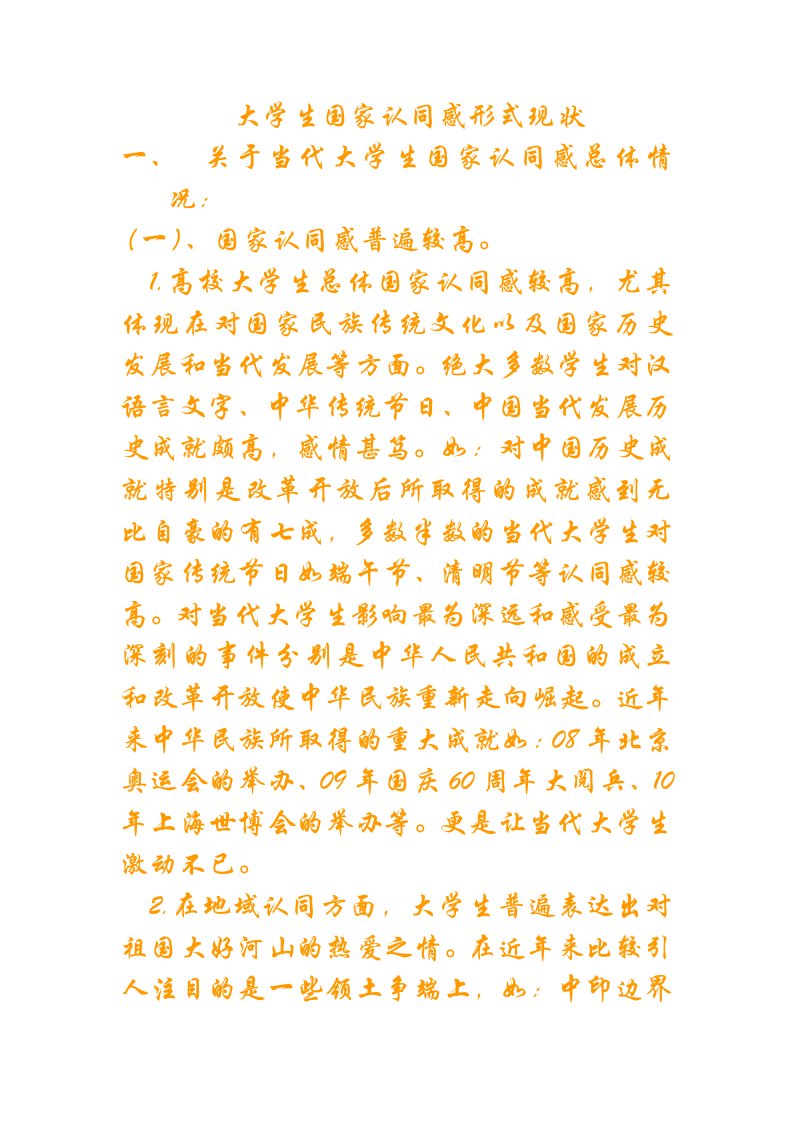 大学生国家认同感形式现状
一、 关于当代大学生国家认同感总体情
况：
(一)、国家认同感普遍较高。
1.高校大学生总体国家认同感较高，尤其
体现在对国家民族传统文化以及国家历史
发展和当代发展等方面。绝大多数学生对汉
语言文字、中华传统节日、中国当代发展历
史成就颇高，感情甚笃。如：对中国历史成
就特别是改革开放后所取得的成就感到无
比自豪的有七成，多数半数的当代大学生对
国家传统节日如端午节、清明节等认同感较
高。对当代大学生影响最为深远和感受最为
深刻的事件分别是中华人民共和国的成立
和改革开放使中华民族重新走向崛起。近年
来中华民族所取得的重大成就如：08年北京
奥运会的举办、09年国庆60周年大阅兵、10
年上海世博会的举办等。更是让当代大学生
激动不已。
2.在地域认同方面，大学生普遍表达出对
祖国大好河山的热爱之情。在近年来比较引
人注目的是一些领土争端上，如：中印边界